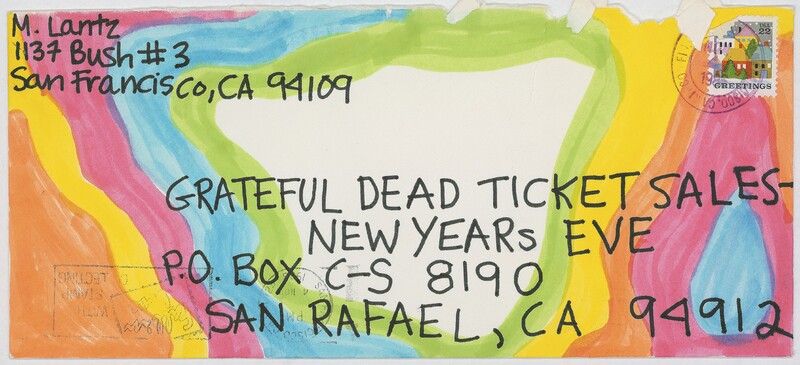 M. Lantz
1137 Bush # 3
San Francisco, CA 94109
USA
22
GREETINGS
GRATEFUL DEAD TICKET SALES-
NEW YEARS EVE
P.O. BOX C-S 8190
SAN RAFAEL, CA 94912
WITH
STAMP
LECTING